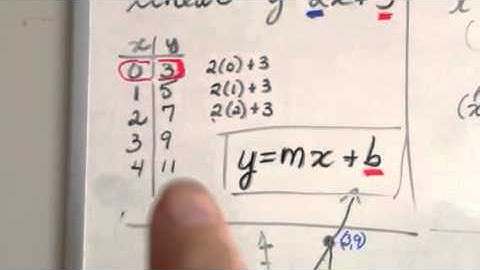 linear y 2x+3
x y
0 3 2(0)+3
1 5 2(1)+3
2 7 2(2)+3
3 9
4 11
y=mx+b